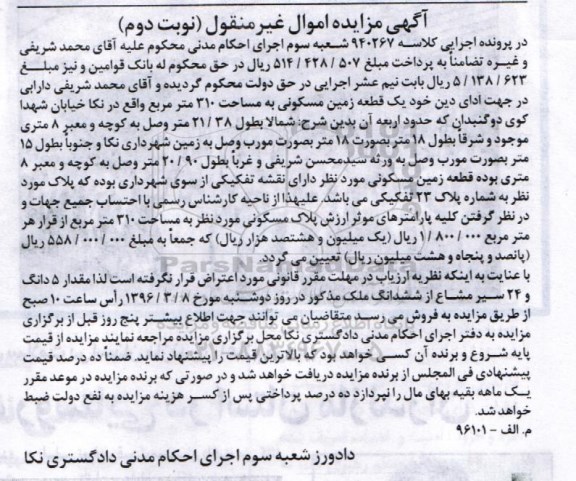 آگهی مزایده اموال غیرمنقول (نوبت دوم)
در پرونده اجرایی کلاسه ۹۴۰۲۶۷ شعبه سوم اجرای احکام مدنی محکوم علیه آقای محمد شریفی
و غیره تضامناً به پرداخت مبلغ ۵۰۷ / ۴۲۸ / ۵۱۴ ریال در حق محکوم له بانک قوامین و نیز مبلغ
۶۲۳ / ۱۳۸ / ۵ ریال بابت نیم عشر اجرایی در حق دولت محکوم گردیده و آقای محمد شریفی دارابی
در جهت ادای دین خود یک قطعه زمین مسکونی به مساحت ۳۱۰ متر مربع واقع در نکا خیابان شهدا
کوی دوگنبدان که حدود اربعه آن بدین شرح: شمالا بطول ۳۸ / ۲۱ متر وصل به کوچه و معبر ۸ متری
موجود و شرقاً بطول ۱۸ متر بصورت ۱۸ متر بصورت مورب وصل به زمین شهرداری نکا و جنوباً بطول ۱۵
متر بصورت مورب وصل به ورثه سیدمحسن شریفی و غرباً بطول ۹۰ / ۲۰ متر وصل به کوچه و معبر ۸
متری بوده قطعه زمین مسکونی مورد نظر دارای نقشه تفکیکی از سوی شهرداری بوده که پلاک مورد
نظر به شماره پلاک ۲۳ تفکیکی می باشد. علیهذا از ناحیه کارشناس رسمی با احتساب جمیع جهات و
در نظر گرفتن کلیه پارامترهای موثر ارزش پلاک مسکونی مورد نظر به مساحت ۳۱۰ متر مربع از قرار هر
متر مربع ۰۰۰ / ۸۰۰ / ۱ ریال (یک میلیون و هشتصد هزار ریال) که جمعاً به مبلغ ۰۰۰ / ۰۰۰ / ۵۵۸ ریال
(پانصد و پنجاه و هشت میلیون ریال) تعیین می گردد.
با عنایت به اینکه نظریه ارزیاب در مهلت مقرر قانونی مورد اعتراض قرار نگرفته است لذا مقدار ۵ دانگ
و ۲۴ سیر مشاع از ششدانگ ملک مذکور در روز دوشنبه مورخ ۸ / ۳ / ۱۳۹۶ رأس ساعت ۱۰ صبح
از طریق مزایده به فروش می رسد متقاضیان می توانند جهت اطلاع بیشتر پنج روز قبل از برگزاری
مزایده به دفتر اجرای احکام مدنی دادگستری نکا محل برگزاری مزایده مراجعه نمایند مزایده از قیمت
پایه شروع و برنده آن کسی خواهد بود که بالاترین قیمت را پیشنهاد نماید. ضمناً ده درصد قیمت
پیشنهادی فی المجلس از برنده مزایده دریافت خواهد شد و در صورتی که برنده مزایده در موعد مقرر
یک ماهه بقیه بهای مال را نپردازد ده درصد پرداختی پس از کسر هزینه مزایده به نفع دولت ضبط
خواهد شد.
م. الف - ۹۶۱۰۱
دادورز شعبه سوم اجرای احکام مدنی دادگستری نکا